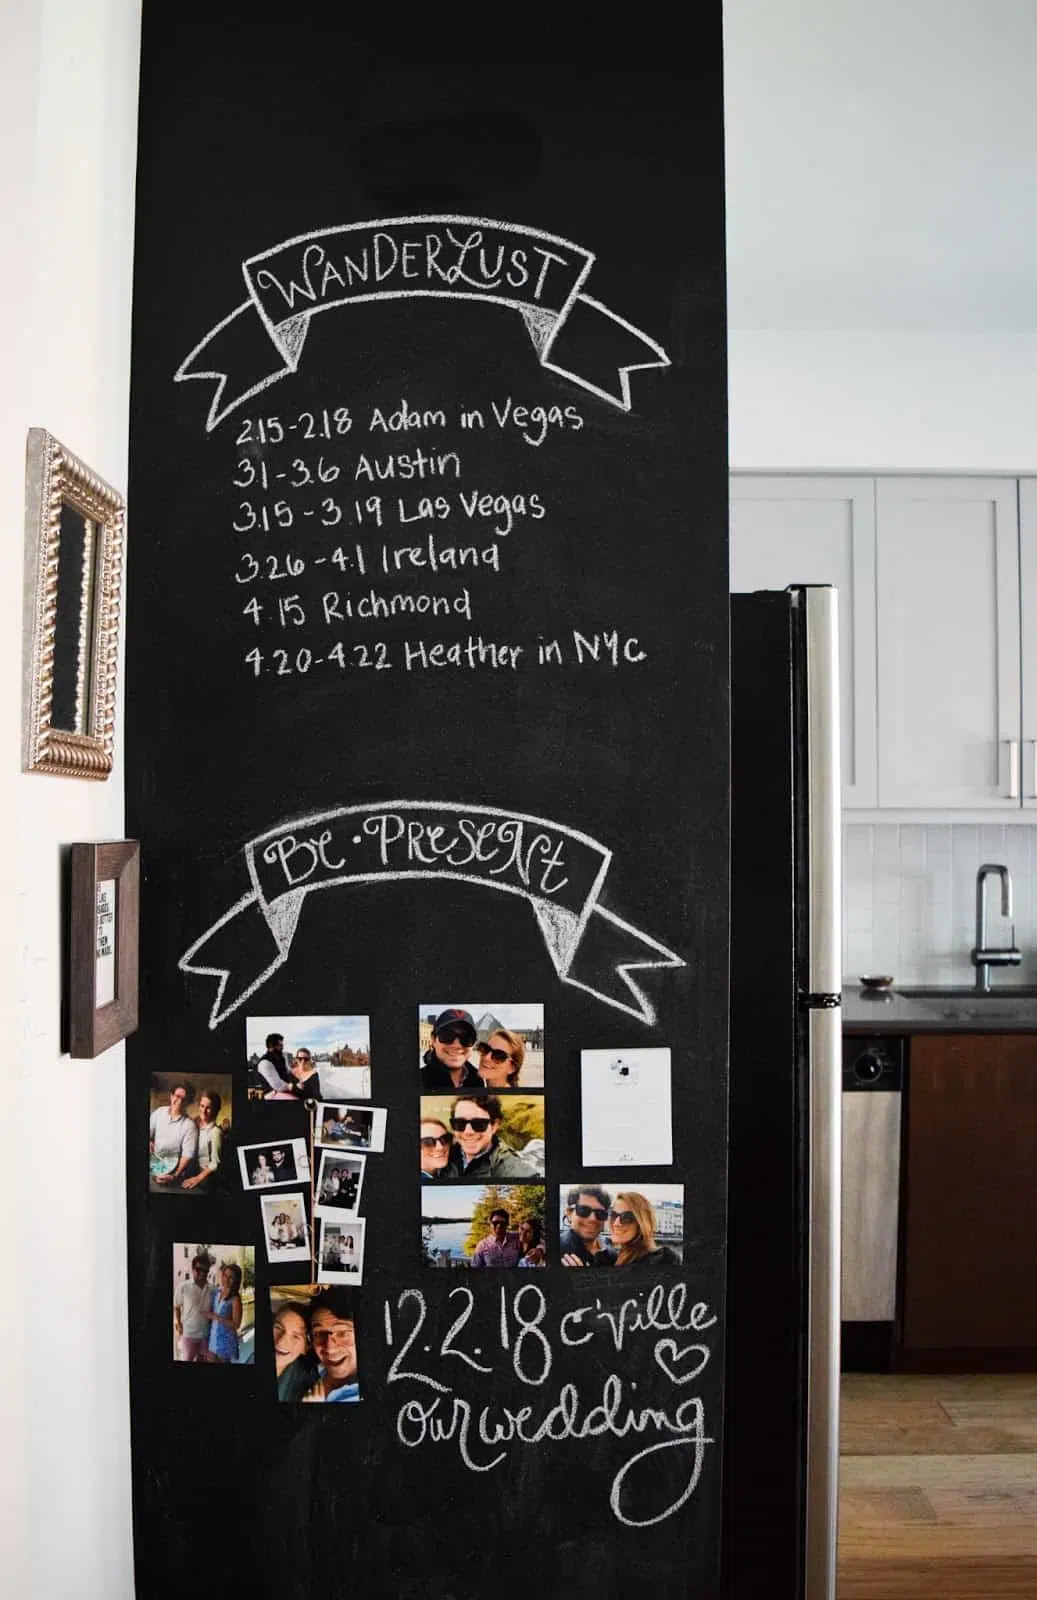 WANDERLUST
2.15-2.18 Adam in Vegas
3.1-3.6 Austin
3.15-3.19 Las Vegas
3.26-4.1 Ireland
4.15 Richmond
4.20-4.22 Heather in NYC
Be · Present
12.2.18 c'ville
our wedding